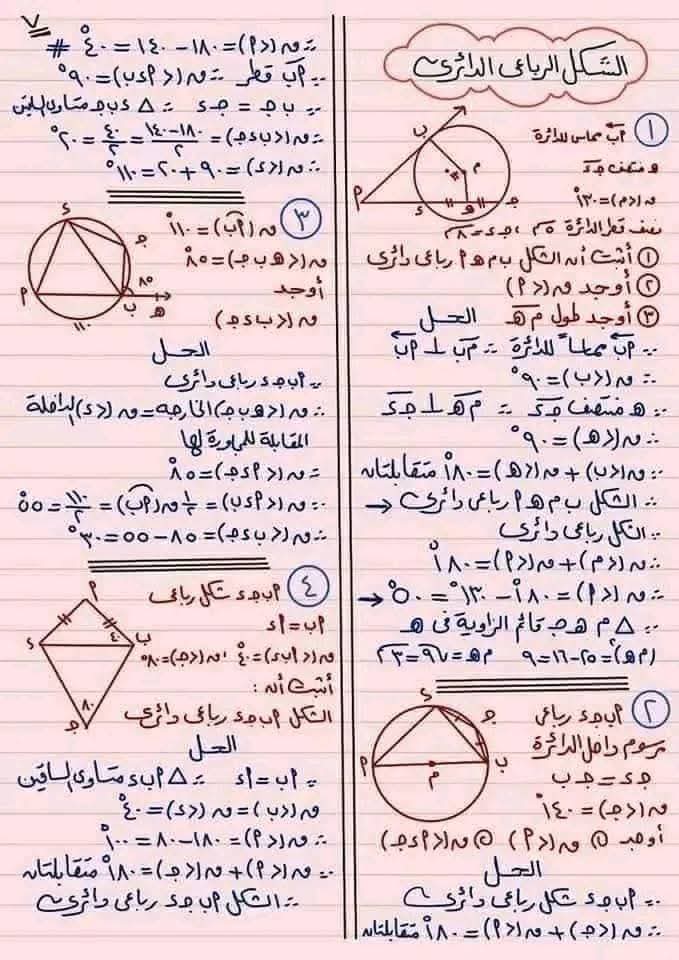 الشكل الرباعى الدائرى
١
أب مماس للدائرة
هـ منتصف جـ د
ق(<م)=١٣٠°
نصف قطر الدائرة ٥سم ، جـ د=٨سم
① أثبت أن الشكل ب م هـ أ رباعى دائرى
② أوجد ق(<أ)
③ أوجد طول م هـ
الحل
∵ أب مماساً للدائرة ∴ م ب ⊥ أب
∴ ق(<ب)=٩٠°
∵ هـ منتصف جـ د ∴ م هـ ⊥ جـ د
∴ ق(<هـ)=٩٠°
∵ ق(<ب)+ق(<هـ)=١٨٠° متقابلتان
∴ الشكل ب م هـ أ رباعى دائرى ←
∵ الشكل رباعى دائرى
∴ ق(<م)+ق(<أ)=١٨٠°
∴ ق(<أ)=١٨٠°-١٣٠°=٥٠° ←
∵ △ م هـ جـ قائم الزاوية فى هـ
(م هـ)²=٢٥-١٦=٩ م هـ=√٩=٣سم
٢
أ ب جـ د رباعى
مرسوم داخل الدائرة
جـ د = جـ ب
ق(<جـ)=١٤٠°
أوجد ① ق(<أ) ② ق(<أ د جـ)
الحل
∵ أ ب جـ د شكل رباعى دائرى
∴ ق(<جـ)+ق(<أ)=١٨٠° متقابلتان
٧
∴ ق(<أ)=١٨٠-١٤٠=٤٠° #
∵ أب قطر ∴ ق(<أ د ب)=٩٠°
∵ ب جـ = جـ د ∴ △ د ب جـ متساوى الساقين
∴ ق(<ب د جـ)=١٨٠-١٤٠/٢=٤٠/٢=٢٠°
∴ ق(<د)=٩٠+٢٠=١١٠°
٣
ق(أب)=١١٠°
ق(<هـ ب جـ)=٨٥°
أوجد
ق(<ب د جـ)
الحل
∵ أ ب جـ د رباعى دائرى
∴ ق(<هـ ب جـ) الخارجة=ق(<د) الداخلة
المقابلة للمجاورة لها
∴ ق(<أ د جـ)=٨٥°
∵ ق(<أ د ب)=½ق(أب)=١١٠/٢=٥٥°
∴ ق(<ب د جـ)=٨٥-٥٥=٣٠°
٤
أ ب جـ د شكل رباعى
أ ب = أ د
ق(<أ ب د)=٤٠° ، ق(<جـ)=٨٠°
أثبت أن :
الشكل أ ب جـ د رباعى دائرى
الحل
∵ أ ب = أ د ∴ △ أ ب د متساوى الساقين
ق(<ب)=ق(<د)=٤٠°
∴ ق(<أ)=١٨٠-٨٠=١٠٠°
∵ ق(<أ)+ق(<جـ)=١٨٠° متقابلتان
∴ الشكل أ ب جـ د رباعى دائرى